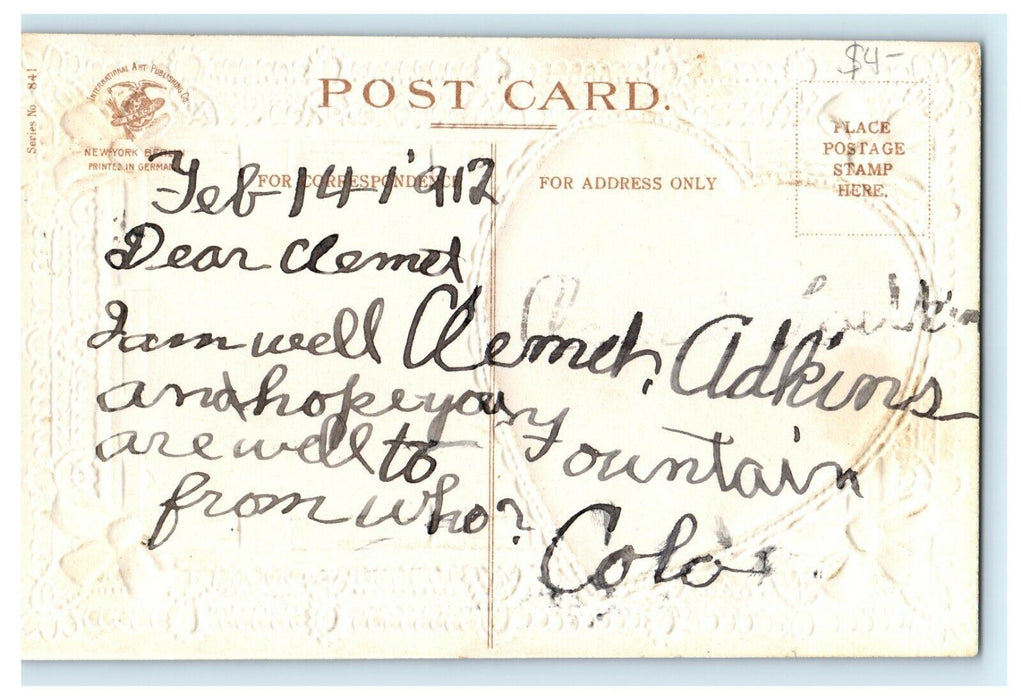 $4-
Series No. 841
INTERNATIONAL ART PUBLISHING CO.
NEW YORK BERLIN
PRINTED IN GERMANY
POST CARD.
PLACE
POSTAGE
STAMP
HERE.
FOR CORRESPONDENCE
FOR ADDRESS ONLY
Feb 14-1912
Dear Clemet
I am well
and hope you
are well to
from who?
Clemet. Adkins
Fountain
Colo